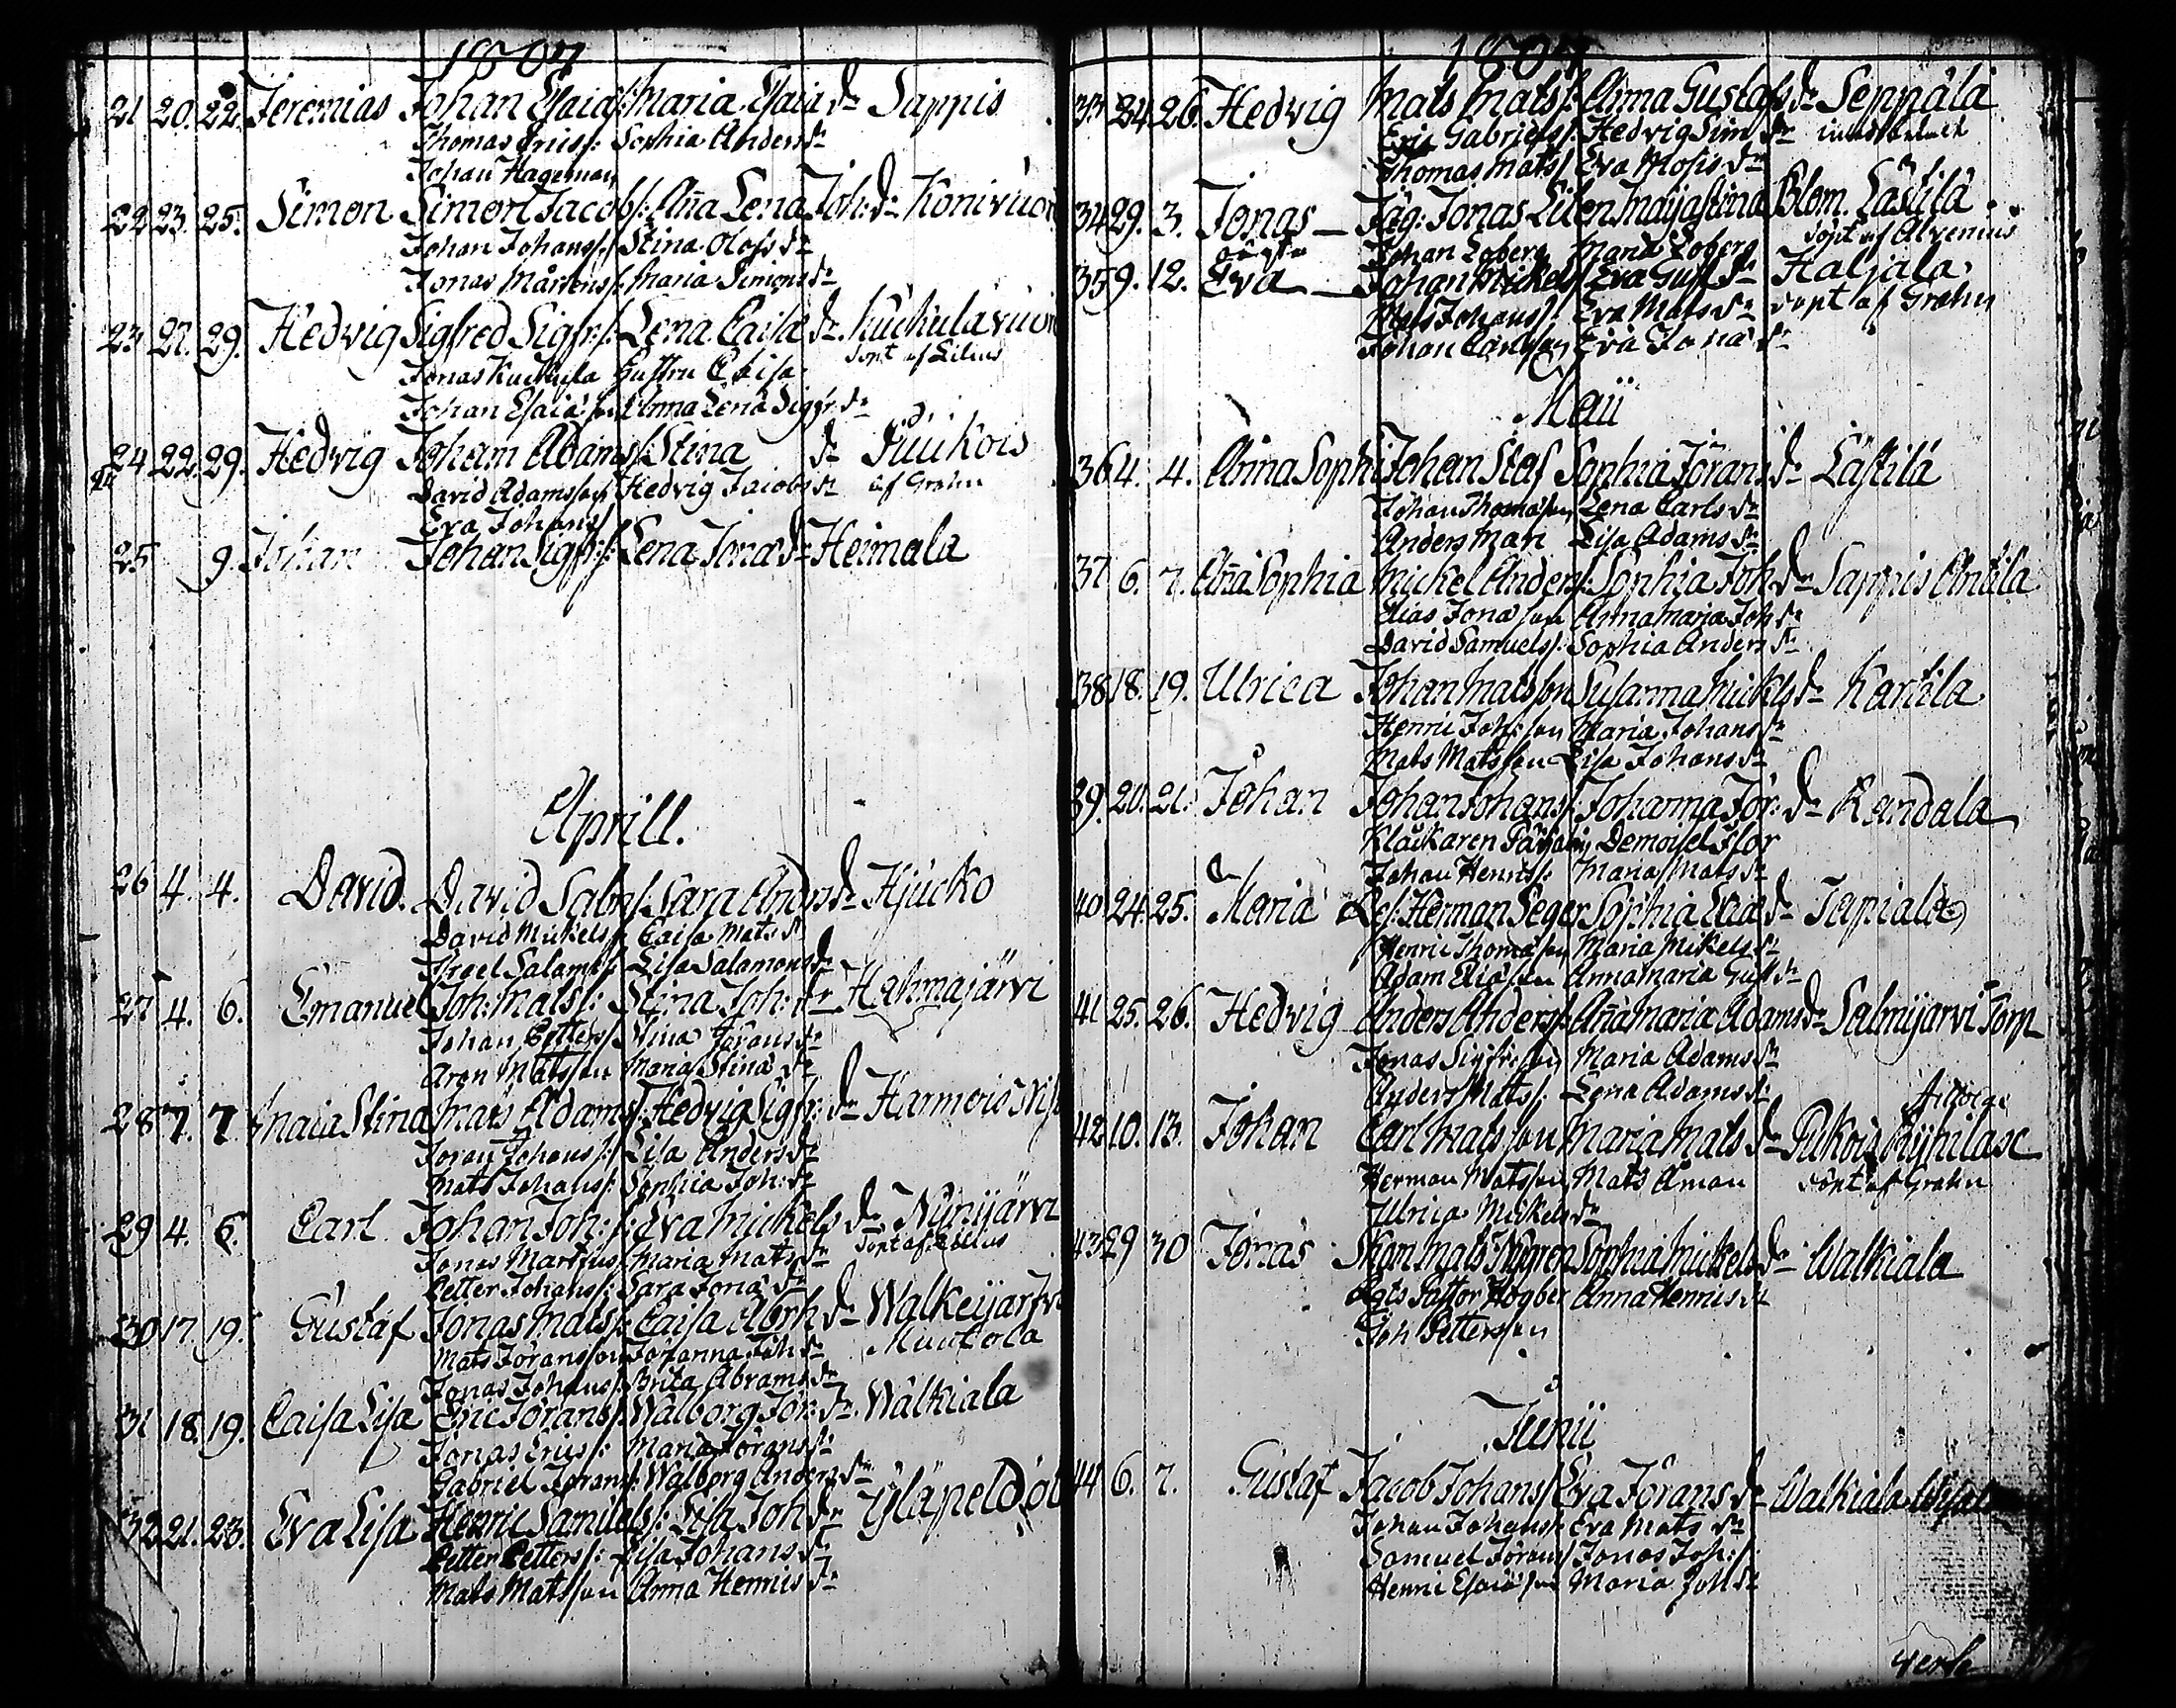 1807
21 20. 22. Jeremias Johan Esaias/: Maria Esaiæ dr Sappis
Thomas Erics/: Sophia Anders dr
Johan Hageman
22 23. 25. Simon Simon Jacobs/: Aña Lena Joh: dr Konivuori
Johan Johans/: Stina Olofs dr
Jonas Mårtens/: Maria Simons dr
23 27. 29. Hedvig Sigfred Sigfr:/: Lena Caisa dr Kuckulavuori
Jonas Kuckula Hustru Caisa döpt af Lilius
Johan Esaiæson Anna Lena Sigfr: dr
24 22. 29. Hedvig Joham Adams/: Stina dr Puukois
David Adamsson Hedvig Jacobs dr af Grahn
Eva Johans
25 9. Johan Johan Sigfr:/: Lena Jonæ dr Heimala
Aprill.
26 4. 4. David. David Salom/: Sara Anders dr Hjucko
David Mickels/: Caisa Mats dr
Israel Salams/: Lisa Salamons dr
27 4. 6. Emanuel Joh: Mats/: Stina Joh: dr Hahmajärvi
Johan Petters/: Stina Jörans dr
Aron Matsson Maria Stina dr
28 7. 7 Maia Stina Mats Adams/: Hedvig Sigfr: dr Harmois
Joran Johans/: Lisa Anders dr
Mats Johans/: Sophia Joh: dr
29 4. 6. Carl Johan Joh:/: Eva Mickels dr Nynijärvi
Jonas Martins/: Maria Mats dr döpt af Lilius
Petter Johans/: Sara Jonæ dr
30 17. 19. Gustaf Jonas Mats/: Caisa Abrh dr Walkeijärfvi
Mats Göransson Johanna Joh dr Muutola
Jonas Johans/: Brita Abrams dr
31 18. 19. Caisa Lisa Eric Jörans/: Walborg Jör: dr Walkiala
Jonas Erics/: Maria Jörans dr
Gabriel Jorans/: Walborg Anders dr
32 21. 23. Eva Lisa Henric Samuels/: Lisa Joh dr
Petter Petters/: Lisa Johans dr
Mats Matsson Anna Henrics dr
1807
33 24. 26. Hedvig Mats Mats/: Anna Gustafs dr Seppälä
Eric Gabriels/: Hedvig Sim dr
Thomas Mats/ Eva Mosis dr
34 29. 3. Jonas Jäg: Jonas Lilen Maija Stina Blom. Lástilä
Johan Loberg Maria Loberg döpt af Alvenius
35 9. 12. oägta Eva Johan Mickels/ Eva Gust dr Haljala
Mats Johans/: Eva Mats dr döpt af Grahn
Johan Carlsson Eva Jonæ dr
Maii
36 4. 4. Anna Sophi Johan Staf Sophia Jörans dr Lástilá
Johan Thomason Lena Carls dr
Anders Man Lisa Adams dr
37 6. 7. Aña Sophia Mickel Anders/: Sophia Joh dr Sappis Antila
Elias Jonæson Anna Maria Joh dr
David Samuels/: Sophia Anders dr
38 18. 19. Ulrica Johan Matsson Susanna Mickls dr Kartila
Henric Joh:son Maria Johans dr
Mats Matsson Lisa Johans dr
39. 20. 21. Johan Johan Johans/: Johanna Jör: dr Randala
Klåckaren Demoisel Flor
Johan Henrics/: Maria Mats dr
40 24. 25. Maria Herman Seger Sophia dr Tapiala
Henric Thomason Maria Mikels dr
Adam Eliæson Anna Maria Gust dr
41 25. 26. Hedvig Anders Anders/: Aña Maria Adams dr Salmijarvi Torp
Jonas Sigfr:son Maria Adams dr
Anders Mats/: Lena Adams dr
42 10. 13. Johan Carl Matsson Maria Mats dr Pukois
Herman Matsson Mats Aman döpt af Grahn
Ulrica Mickels dr
43 29 30 Jonas Mats Sophia Mickels dr Walkiala
Högber Anna Henrics dr
Joh Pettersson
Junii
44 6. 7. Gustaf Jacob Johans/ Eva Jörans dr Walkiala
Johan Johans/: Eva Mats dr
Samuel Jörans/ Jonas Joh:/:
Henric Esaiæson Maria Joh dr